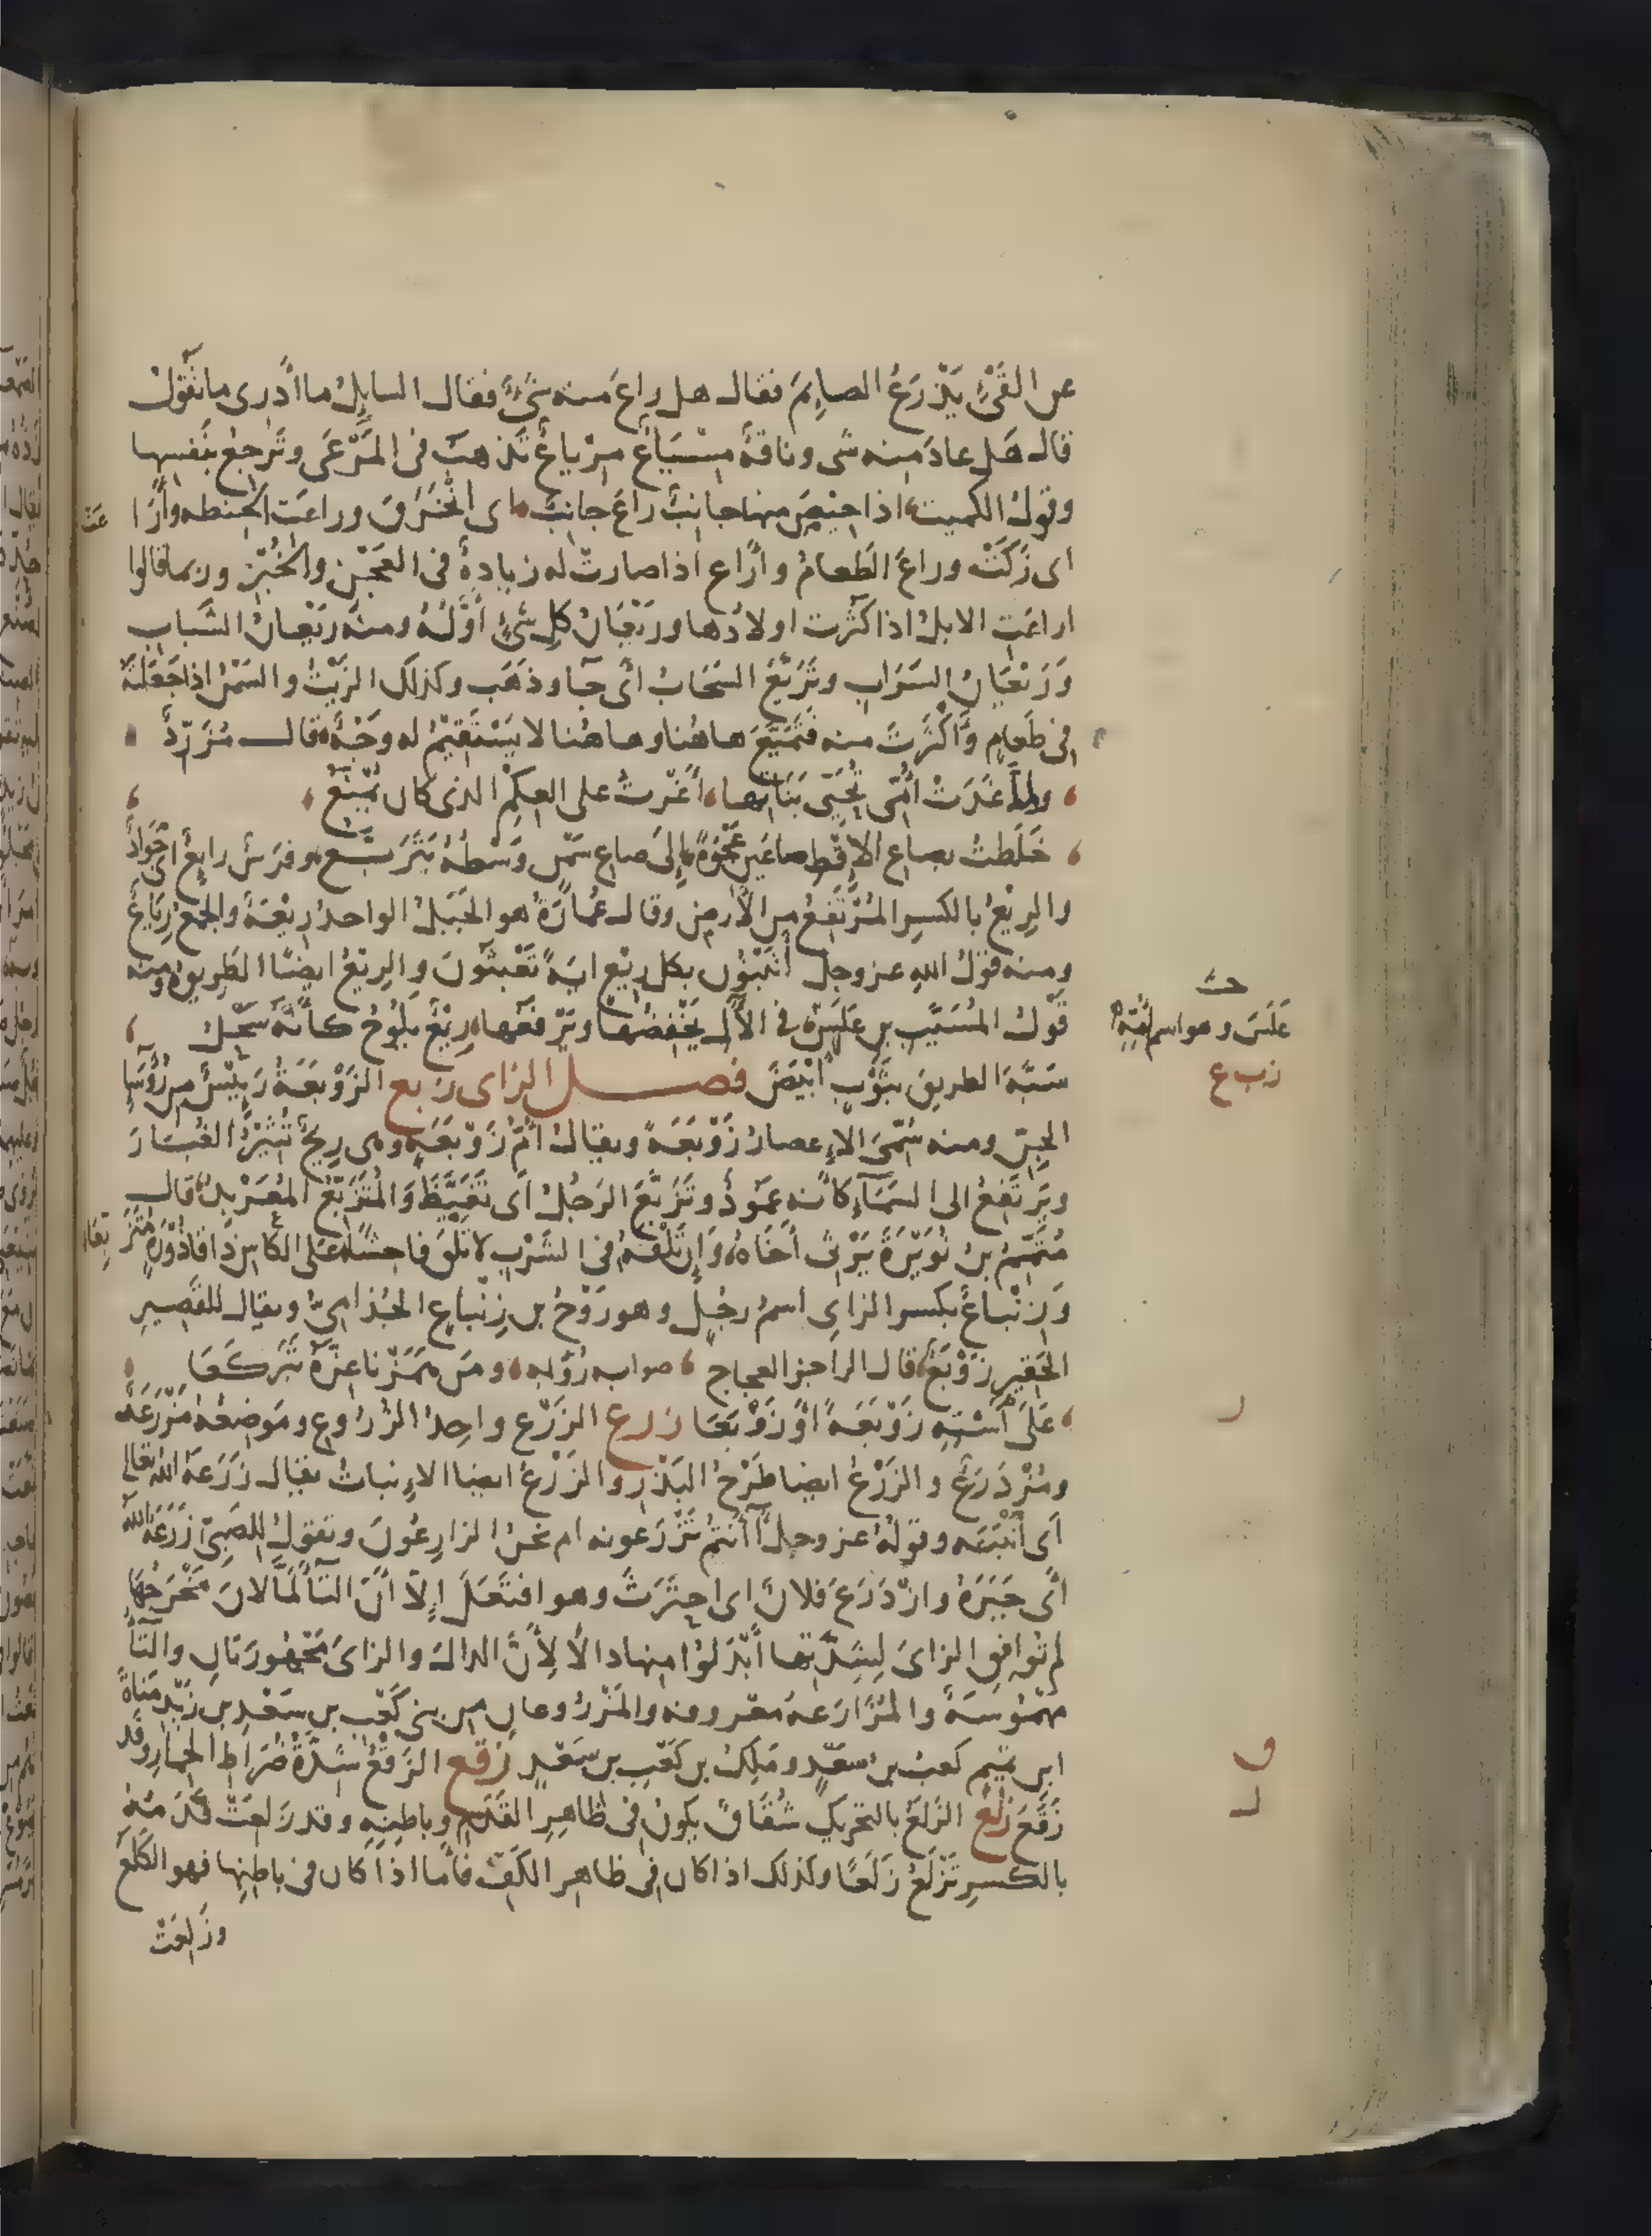 عن القَيْءِ يَذْرَعُ الصايِمَ فقال هل راعَ منه شَيْءٌ فقال السايِلُ ما أدرى ما تقولُ
قال هَل عادَ منه شى وناقةٌ مِسْيَاعٌ مِرْياعٌ تَذهبَ فى المَرْعَى وتَرجعُ بنَفسِها
وقولُ الكميت اذا حِيْصَ منها جانبٌ راعَ جانِبُ اى انْخَرَقَ وراعَت الحنطه وأرَاعَت
اى زَكَتْ وراعَ الطعامُ وأراع اذا صارت له زيادةٌ فى العَجْن والخُبْزِ وربما قالوا
اراعَتِ الابلُ اذا كَثُرت اولادُها ورَيْعَانُ كلِ شَيْءٍ أوَّلُهُ ومنه ريْعانُ الشَّبابِ
وَرَيْعَانُ السَّرَابِ وتَرَيَّعَ السَّحَابُ أى جَآ وذَهَب وكذلك الزيْتُ والسَّمْنُ اذا جَعَلتَهُ
فى طَعامٍ وَأكْثَرتَ منه فَتَمَيَّعَ هاهُنا وهاهُنا لا يَسْتَقِيْمُ له وَجْهٌ قالـــ مُزَرِّدٌ
ولما غَدَتْ أُمّى تُحَيّى بَنَاتِها أغَرتُ على العِكْمِ الذى كان يُمْنَعُ
خَلَطتُ بصاعِ الاقِطِ صاعَينِ عَجْوَةً إلى صاعِ سَمْنٍ وَسْطهُ يَتَرَيَّـــع وفرَسٌ رايعٌ اى جَوَادٌ
والرِيْعُ بالكسرِ المُرْتَفعُ من الأرضِ وقال عُمارَةُ هو الجَبَلُ الواحدُ رِيْعَةٌ والجمع رِيَاعٌ
ومنه قولُ اللهِ عز وجل أتَبْنُون بكل رِيْعٍ ايةً تَعْبَثُونَ والرِيْعُ ايضًا الطرِيقُ ومنه
قَوْلُ المُسَيَّبِ بن عَلَسٍ فى الألِ يَخْفِضُها ويَرْفَعُها رِيْعٌ يَلُوْحُ كأنَّهُ سَحْلُ
عَلَسَ وهو اسم أُمِّهِ
شَبَّهَ الطريق بثَوْبٍ أبْيَضَ فصـــــل الزاى زبع الزَوْبَعَةُ رَئِيْسٌ من رُؤَسَآءِ
زبع
الجِنِّ ومنه سُمِّىَ الإعصارُ زَوْبَعَةً ويقالُ أُمّ زَوْبَعَةٍ وهى رِيحٌ تُثِيْرُ الغُبَارَ
ويَرتَفِعُ الى السَمَآءِ كأنه عَمُودٌ وتَزَبَّعَ الرَجُلُ أى تَغَيَّظَ وَالمُتَزَبِّعُ المُعَرْبِدُ قالـــ
مُتَمِّمُ بنُ نُوَيْرَةَ يَرْثى أخَاهُ وَإن تَلْقَهُ فى الشَرْبِ لا تلقَ فاحِشًا عَلى الكاسِ ذَا قاذُوْرَةٍ مُتَزَبِّعَا
وَزِنْباعٌ بكسر الزاى اسمُ رجُلٍ وهو رَوْحُ بن زِنْباعٍ الجُذامِىّ ويقال للقَصِيرِ
الحَقِيرِ زَوْبَعٌ قال الراجز العجاج صوابه رُؤبه ومَن هَمَزْنا عِزَّهُ تَبَرْكَعَا
عَلَى أسْتِهِ زَوْبَعَةً أوْ زَوْبَعَا زرع الزَرْع واحِدُ الزُروعِ ومَوضِعُهُ مَزْرَعَة
ومُزْدَرَعٌ والزَرْعُ ايضا طَرْحُ البَذْرِ والزَرْعُ ايضا الإنباتُ يقال زَرَعَهُ اللهُ تعالى
أى أنْبَتَهُ وقولُهُ عز وجل أأنتُم تَزْرَعونه ام نحنُ الزارِعُونَ وتقولُ للصَبِىّ زَرَعَهُ اللهُ
أى جَبَرَهُ وازْدَرَعَ فلانٌ اى احتَرَثَ وهو افتَعَلَ إلاّ أنّ التَآ لَمَّا لانَ مَخْرَجُها
لم تُوافِقِ الزاىَ لِشِدَّتِها أبْدَلوُا منها دالاً لِأَنَّ الدالَ والزاىَ مَجْهُورَتانِ والتَآ
مهمُوسَةٌ والمُزَارَعَةُ مَعْروفه والمَزْرُوعانِ من بنى كَعْبِ بن سَعْدِ بن زَيْدِ مَنَاةَ
ابن تميم كعبُ بنُ سَعْدٍ ومَلِكُ بن كَعْبِ بن سَعْدٍ زقع الزَقْعُ شِدَّةُ ضُرَاطِ الحِمَارِ وقد
زَقَعَ زلع الزَلَعُ بالتحريكِ شُقَاقٌ يكونُ فى ظاهِرِ القَدَمِ وباطِنِهِ وقد زَلِعَتْ قَدَمُهُ
بالكسرِ تَزْلَعُ زَلَعًا وكذلك اذا كان فى ظاهِرِ الكَفِّ فأما اذا كان فى باطنِها فهو الكَلَعُ
وزَلِعَتْ